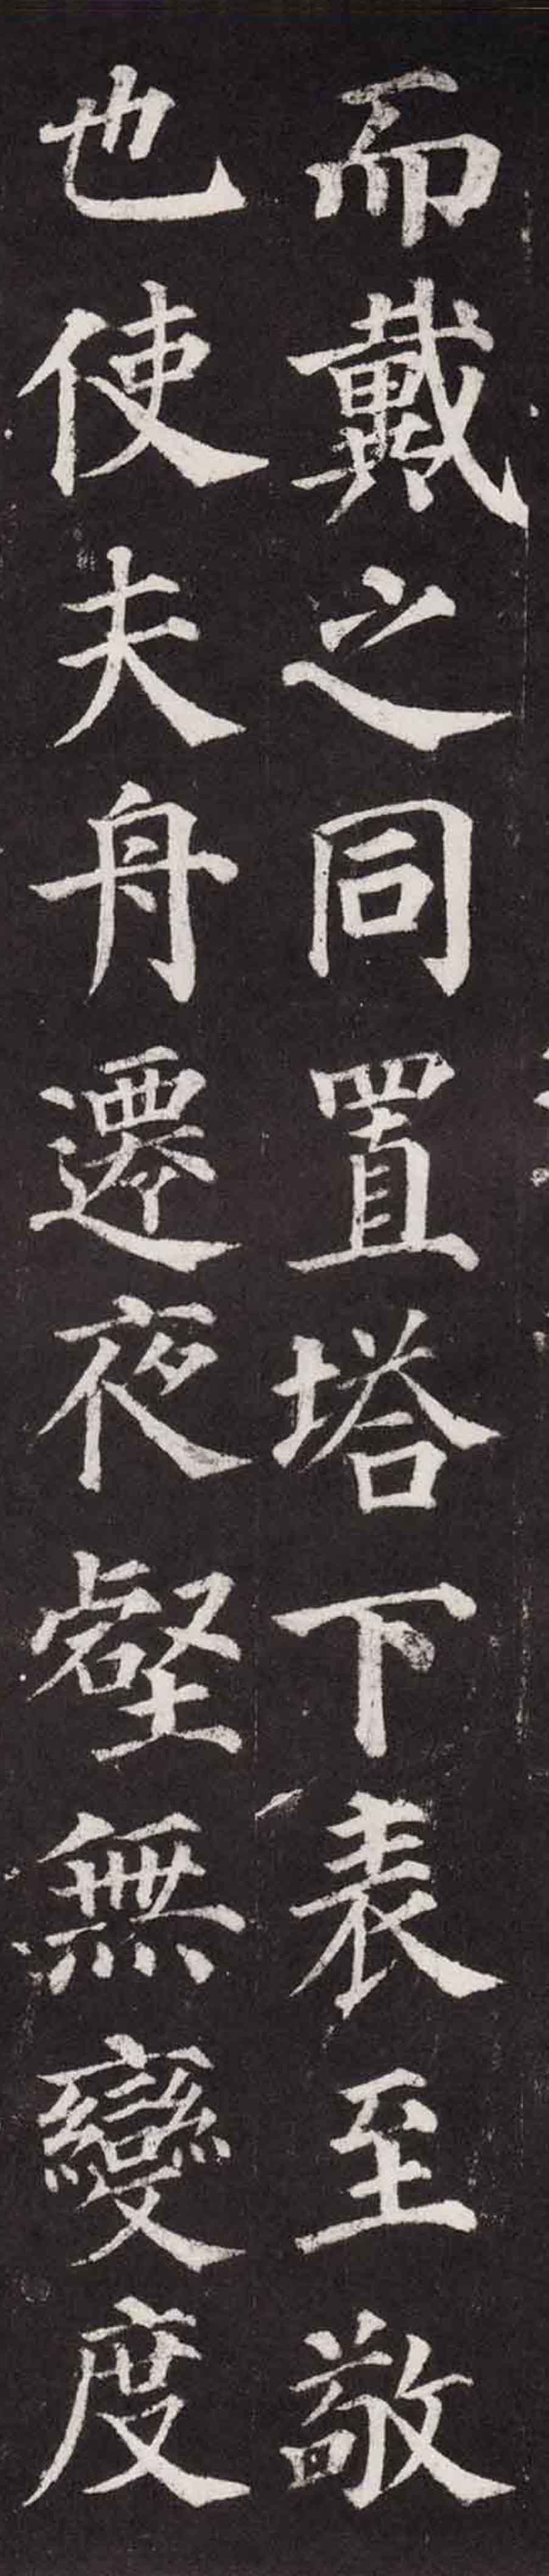 而戴之同置塔下表至敬
也使夫舟遷夜壑無變度